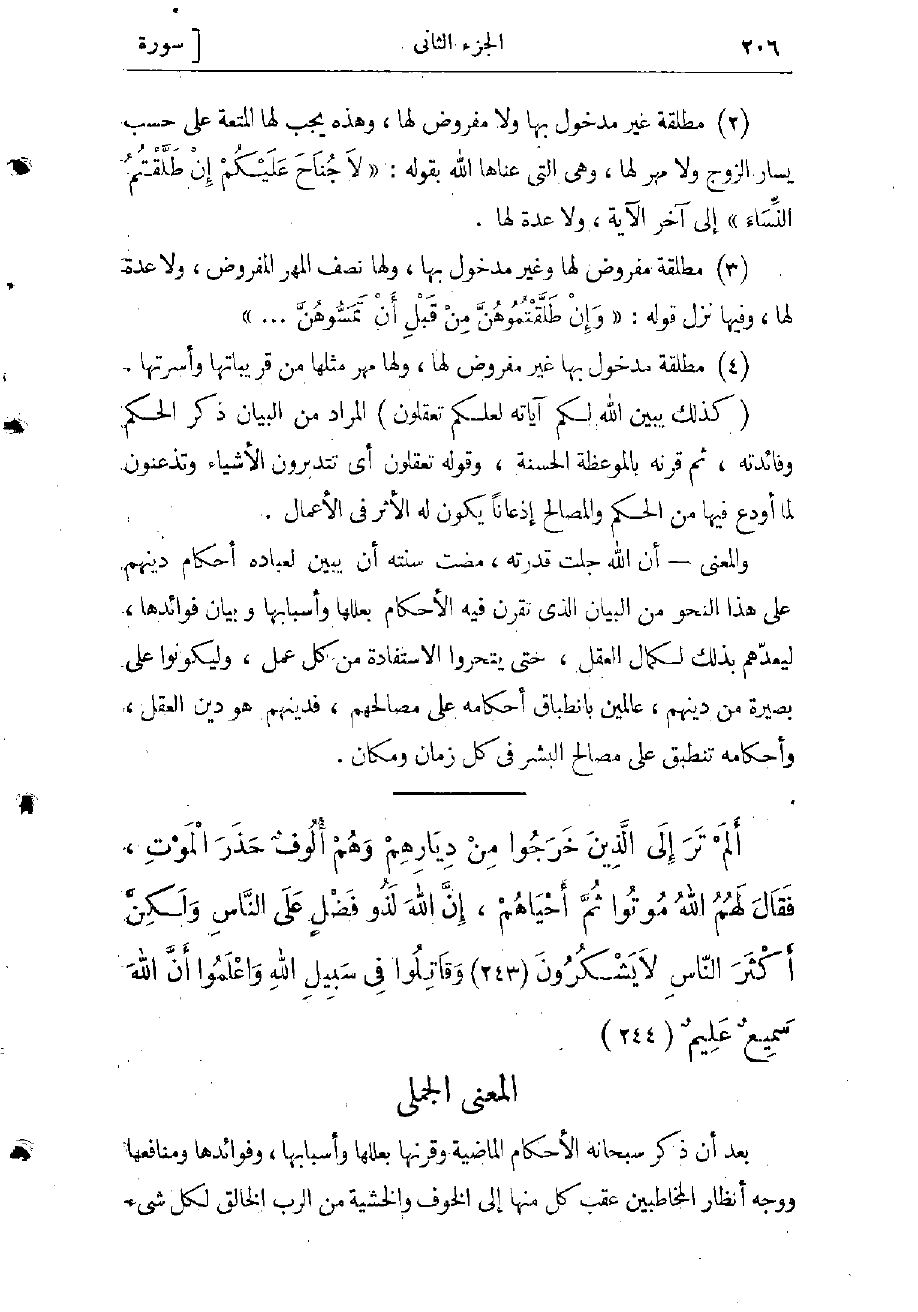 ٢٠٦ الجزء الثانى [ سورة
(٢) مطلقة غير مدخول بها ولا مفروض لها ، وهذه يجب لها المتعة على حسب
يسار الزوج ولا مهر لها ، وهى التى عناها الله بقوله : « لاَ جُنَاحَ عَلَيْكُمْ إِنْ طَلَّقْتُمُ
النِّسَاءَ » إلى آخر الآية ، ولا عدة لها .
(٣) مطلقة مفروض لها وغير مدخول بها ، ولها نصف المهر المفروض ، ولا عدة
لها ، وفيها نزل قوله : « وَإِنْ طَلَّقْتُمُوهُنَّ مِنْ قَبْلِ أَنْ تَمَسُّوهُنَّ ... »
(٤) مطلقة مدخول بها غير مفروض لها ، ولها مهر مثلها من قريباتها وأسرتها .
( كذلك يبين الله لكم آياته لعلكم تعقلون ) المراد من البيان ذكر الحكم
وفائدته ، ثم قرنه بالموعظة الحسنة ، وقوله تعقلون أى تتدبرون الأشياء وتذعنون
لما أودع فيها من الحكم والمصالح إذعاناً يكون له الأثر فى الأعمال .
والمعنى — أن الله جلت قدرته ، مضت سنته أن يبين لعباده أحكام دينهم
على هذا النحو من البيان الذى تقرن فيه الأحكام بعللها وأسبابها وبيان فوائدها ،
ليعدّهم بذلك لكمال العقل ، حتى يتحروا الاستفادة من كل عمل ، وليكونوا على
بصيرة من دينهم ، عالمين بانطباق أحكامه على مصالحهم ، فدينهم هو دين العقل ،
وأحكامه تنطبق على مصالح البشر فى كل زمان ومكان .
أَلَمْ تَرَ إِلَى الَّذِينَ خَرَجُوا مِنْ دِيَارِهِمْ وَهُمْ أُلُوفٌ حَذَرَ الْمَوْتِ ،
فَقَالَ لَهُمُ اللهُ مُوتُوا ثُمَّ أَحْيَاهُمْ ، إِنَّ اللهَ لَذُو فَضْلٍ عَلَى النَّاسِ وَلَكِنَّ
أَكْثَرَ النَّاسِ لاَيَشْكُرُونَ (٢٤٣) وَقَاتِلُوا فِى سَبِيلِ اللهِ وَاعْلَمُوا أَنَّ اللهَ
سَمِيعٌ عَلِيمٌ ( ٢٤٤ )
المعنى الجملى
بعد أن ذكر سبحانه الأحكام الماضية وقرنها بعللها وأسبابها ، وفوائدها ومنافعها
ووجه أنظار المخاطبين عقب كل منها إلى الخوف والخشية من الرب الخالق لكل شىء